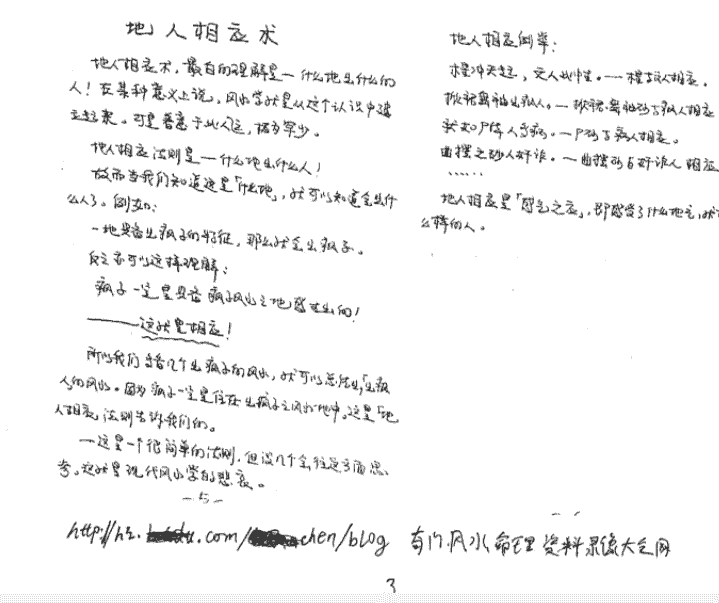 地人相应术
地人相应术，最白的理解是一什么地出什么的
人！在某种意义上说，风水学就是从这个认识中建
立起来。可是着意于此人这，极为罕少。
地人相应法则是一什么地出什么人！
故而当我们知道这是「什么地」，就可以知道会出什
么人了。例如：
一地具备出疯子的特征，那么就会出疯子。
反之亦可以这样理解：
疯子一定是具备疯子风水之地感生出的！
——这就是相应！
所以我们多看几个出疯子的风水，就可以总结出，「出疯
人的风水。因为疯子一定是住在出疯子之风水地中。这是「地
人相应」法则告诉我们的。
一这是一个很简单的法则，但没几个会往这方面思
考。这就是现代风水学的悲哀。
-5-
地人相应例举：
人相应。
疯人相应
一尸形与病人相应。
曲摆之砂人奸诈。一曲摆形与奸诈人相应
……
地人相应是「感气之应」，即感受了什么地气，就
么样的人。
http://hi. .com/ chen/blog 奇门风水命理资料录像大全网
3